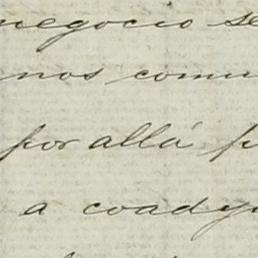 negocio se
nos comu
por allá p
a coady